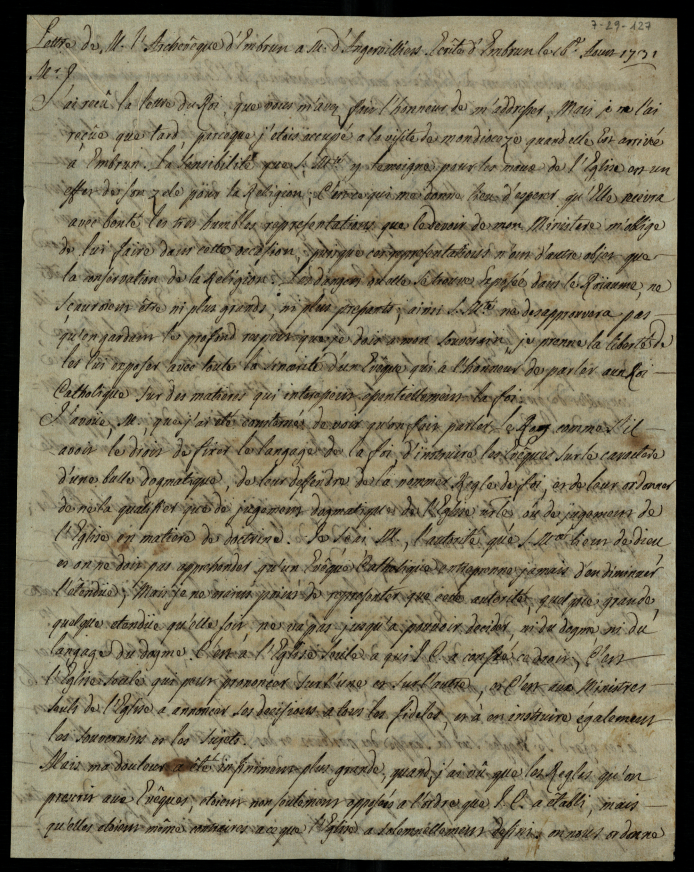 7-29-127
Lettre de M. l'Archevêque d'Embrun a M. d'Angervilliers. Ecrite d'Embrun le 6e. Aout 1731
Mr.
J'ai reçû la lettre du Roi, que vous m'avez fait l'honneur de m'addresser, Mais je ne l'ai
reçüe que tard, parceque j'étois occupé a la visite de mon diocèze quand elle est arrivée
à Embrun. La sensibilité que S. Mté. y temoigne pour les maux de l'Eglise est un
effet de son zele pour la Religion, C'est ce qui me donne lieu d'esperer qu'Elle recevra
avec bonté les tres humbles representations que le devoir de mon Ministére m'oblige
de lui faire dans cette occasion, puisque ces representations n'ont d'autre objet que
la conservation de la Religion. Les dangers ou elle se trouve Exposée dans le Roïaume, ne
scauroient être ni plus grands, ni plus pressants, ainsi S. Mté. ne desapprouvera pas
qu'en gardant le profond respect que je dois a mon souverain, je prenne la liberté de
les lui exposer avec toute la sincerité d'un Evêque qui a l'honneur de parler au Roi
Catholique sur des matieres qui interessent essentiellement la foi.
J'avoüe, M., que j'ai été consterné de voir qu'on fait parler le Roy comme s'il
avoit le droit de fixer le langage de la foi, d'instruire les Evêques sur le caractere
d'une bulle dogmatique, de leur deffendre de la nommer Regle de foi, et de leur ordonner
de ne la qualifier que de jugement dogmatique de l'Eglise ulle. ou de jugement de
l'Eglise en matiere de doctrine. Je sçai, M., l'autorité que S. Mté. tient de dieu
et on ne doit pas apprehender qu'un Evêque Catholique entreprenne jamais d'en diminuer
l'étendüe; Mais je ne merite point de representer que cette autorité, quelque grande,
quelque etendüe qu'elle soit, ne va pas jusqu'a pouvoir decider, ni du dogme ni du
langage du dogme. C'est a l'Eglise seule a qui J. C. a confié ce droit, C'est
l'Eglise seule qui peut prononcer sur l'une et sur l'autre, et C'est aux Ministres
seuls de l'Eglise a annoncer ses decisions a tous les fideles, et à en instruire également
les souverains et les sujets.
Mais ma douleur a été infiniment plus grande, quand j'ai vû que les Regles qu'on
prescrit aux Evêques, étoient non seulement opposées a l'ordre que J. C. a établi, mais
qu'elles étoient même contraires a ce que l'Eglise a solemnellement defini. on nous ordonne